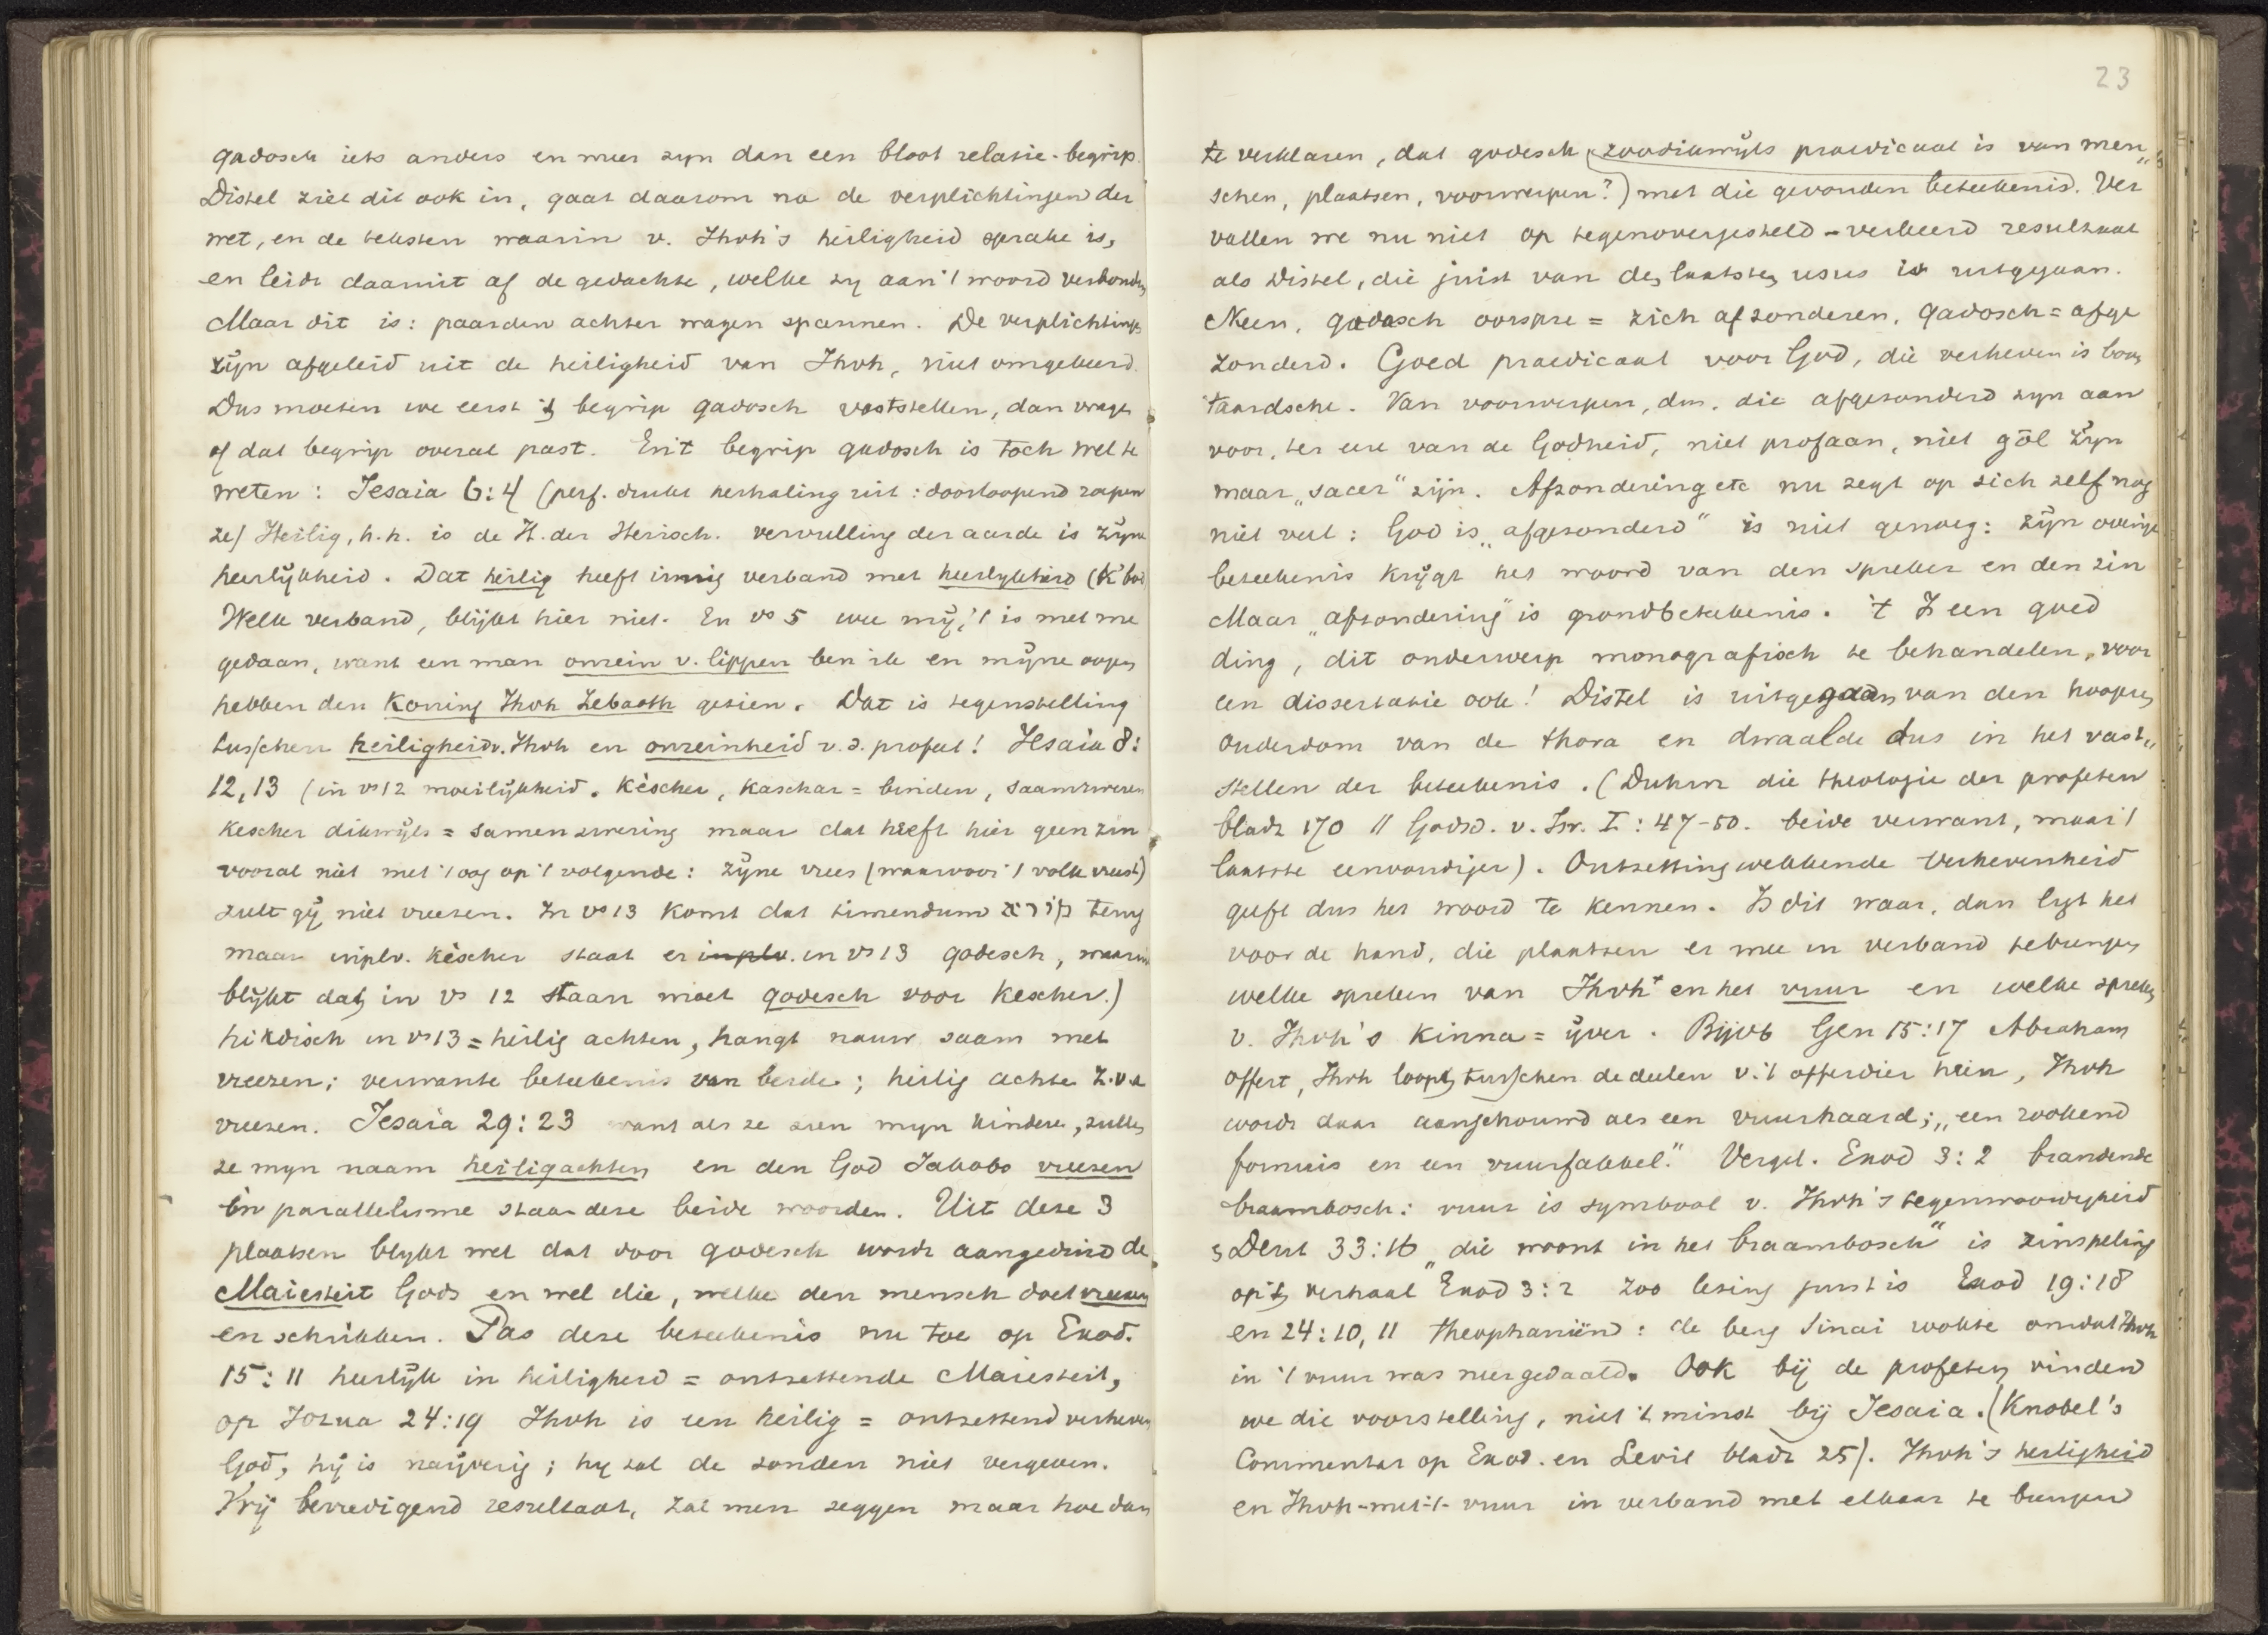 qadosch iets anders en meer zyn dan een bloot relatie-begrip.
Distel ziet dit ook in, gaat daarom na de verplichtingen der
wet, en de teksten waarin v. Jhvh's heiligheid sprake is,
en leidt daaruit af de gedachte, welke zy aan 't woord verbonden
Maar dit is: paarden achter wagen spannen. De verplichtingen
zijn afgeleid uit de heiligheid van Jhvh, niet omgekeerd.
Dus moeten we eerst 't begrip qadosch vaststellen, dan vragen
of dat begrip overal past. En 't begrip qadosch is toch wel te
weten: Jesaia 6:4 (perf. drukt herhaling uit: doorloopend roepen
ze) Heilig, h.h. is de H. der Heirsch. vervulling der aarde is zijne
heerlijkheid. Dat heilig heeft innig verband met heerlykheid (k'bod
Welk verband, blijkt hier niet. En vs 5 wee mij, 't is met me
gedaan, want een man onrein v. lippen ben ik en mijne oogen
hebben den Koning Jhvh Zebaoth gezien. Dat is tegenstelling
tusschen heiligheid v. Jhvh en onreinheid v. d. profeet! Jesaia 8:
12,13 (in vs 12 moeilijkheid. Kèscher, Kaschar = binden, saamzweren
Kescher dikwijls = samenzwering maar dat heeft hier geen zin
vooral niet met 't oog op 't volgende: zijne vrees (waarvoor 't volk vreest)
zult gij niet vreezen. In vs 13 komt dat timendum terug
maar inplv. kèscher staat er inplv. in vs 13 qodesch, waaruit
blijkt dat in vs 12 staan moet qodesch voor Kescher.)
hikdisch in vs 13 = heilig achten, hangt nauw saam met
vreezen; verwante beteekenis van beide; heilig achten z.v.a
vreezen. Jesaia 29:23 want als ze zien myn kinderen, zullen
ze myn naam heiligachten en den God Jakobs vreezen
in parallelisme staan deze beide woorden. Uit deze 3
plaatsen blykt wel dat door qodesch wordt aangeduid de
Maiesteit Gods en wel die, welke den mensch doet vreezen
en schrikken. Pas deze beteekenis nu toe op Exod.
15:11 heerlijk in heiligheid = ontzettende Maiesteit,
op Jozua 24:19 Jhvh is een heilig = ontzettend verheven
God, hij is naijverig; hy zal de zonden niet vergeven.
Vrij bevredigend resultaat, zal men zeggen maar hoe dan
23
te verklaren, dat qodesch (zoodikwijls praedicaat is van men„
schen, plaatsen, voorwerpen?) met die gevonden beteekenis. Ver
vallen we nu niet op tegenovergesteld-verkeerd resultaat
als Distel, die juist van de laatste usus is uitgegaan.
Neen, qadasch oorspre = zich afzonderen, qadosch = afge
zonderd. Goed praedicaat voor God, die verheven is boven
't aardsche. Van voorwerpen, dm. die afgezonderd zyn aan
voor, ter eere van de Godheid, niet profaan, niet gōl zijn
maar „sacer" zijn. Afzondering etc nu zegt op zich zelf nog
niet veel: God is „afgezonderd" is niet genoeg: zijn overige
beteekenis krijgt het woord van den spreker en den zin
Maar „afzondering" is grondbeteekenis. 't Is een goed
ding, dit onderwerp monografisch te behandelen, voor
een dissertatie ook! Distel is uitgegaan van den hoogen
ouderdom van de thora en dwaalde dus in het vast„
stellen der beteekenis. (Duhm die theologie der profeten
bladz 170 // Godsd. v. Isr. I: 47-50. beide verwant, maar 't
laatste eenvoudiger). Ontzettingwekkende Verhevenheid
geeft dus het woord te kennen. Is dit waar, dan ligt het
voor de hand, die plaatsen er mee in verband te brengen
welke spreken van Jhvh+ en het vuur en welke spreken
v. Jhvh's Kinna = ijver. Bijvb Gen 15:17 Abraham
offert, Jhvh loopt tusschen de deelen v. 't offerdier heen, Jhvh
wordt daar aanschouwd als een vuurhaard; „een rookend
fornuis en een vuurfakkel." Vergel. Exod 3:2 brandende
braambosch: vuur is symbool v. Jhvh's tegenwoordigheid
Deut 33:16 „die woont in het braambosch" is zinspeling
op 't verhaal Exod 3:2 zoo lezing juist is Exod 19:18
en 24:10, 11 theophaniën: de berg Sinai rookte omdat Jhvh
in 't vuur was neergedaald. Ook bij de profeten vinden
we die voorstelling, niet 't minst bij Jesaia. (Knobel's
Commentar op Exod. en Levit bladz 25). Jhvh's heiligheid
en Jhvh-met-'t-vuur in verband met elkaar te brengen